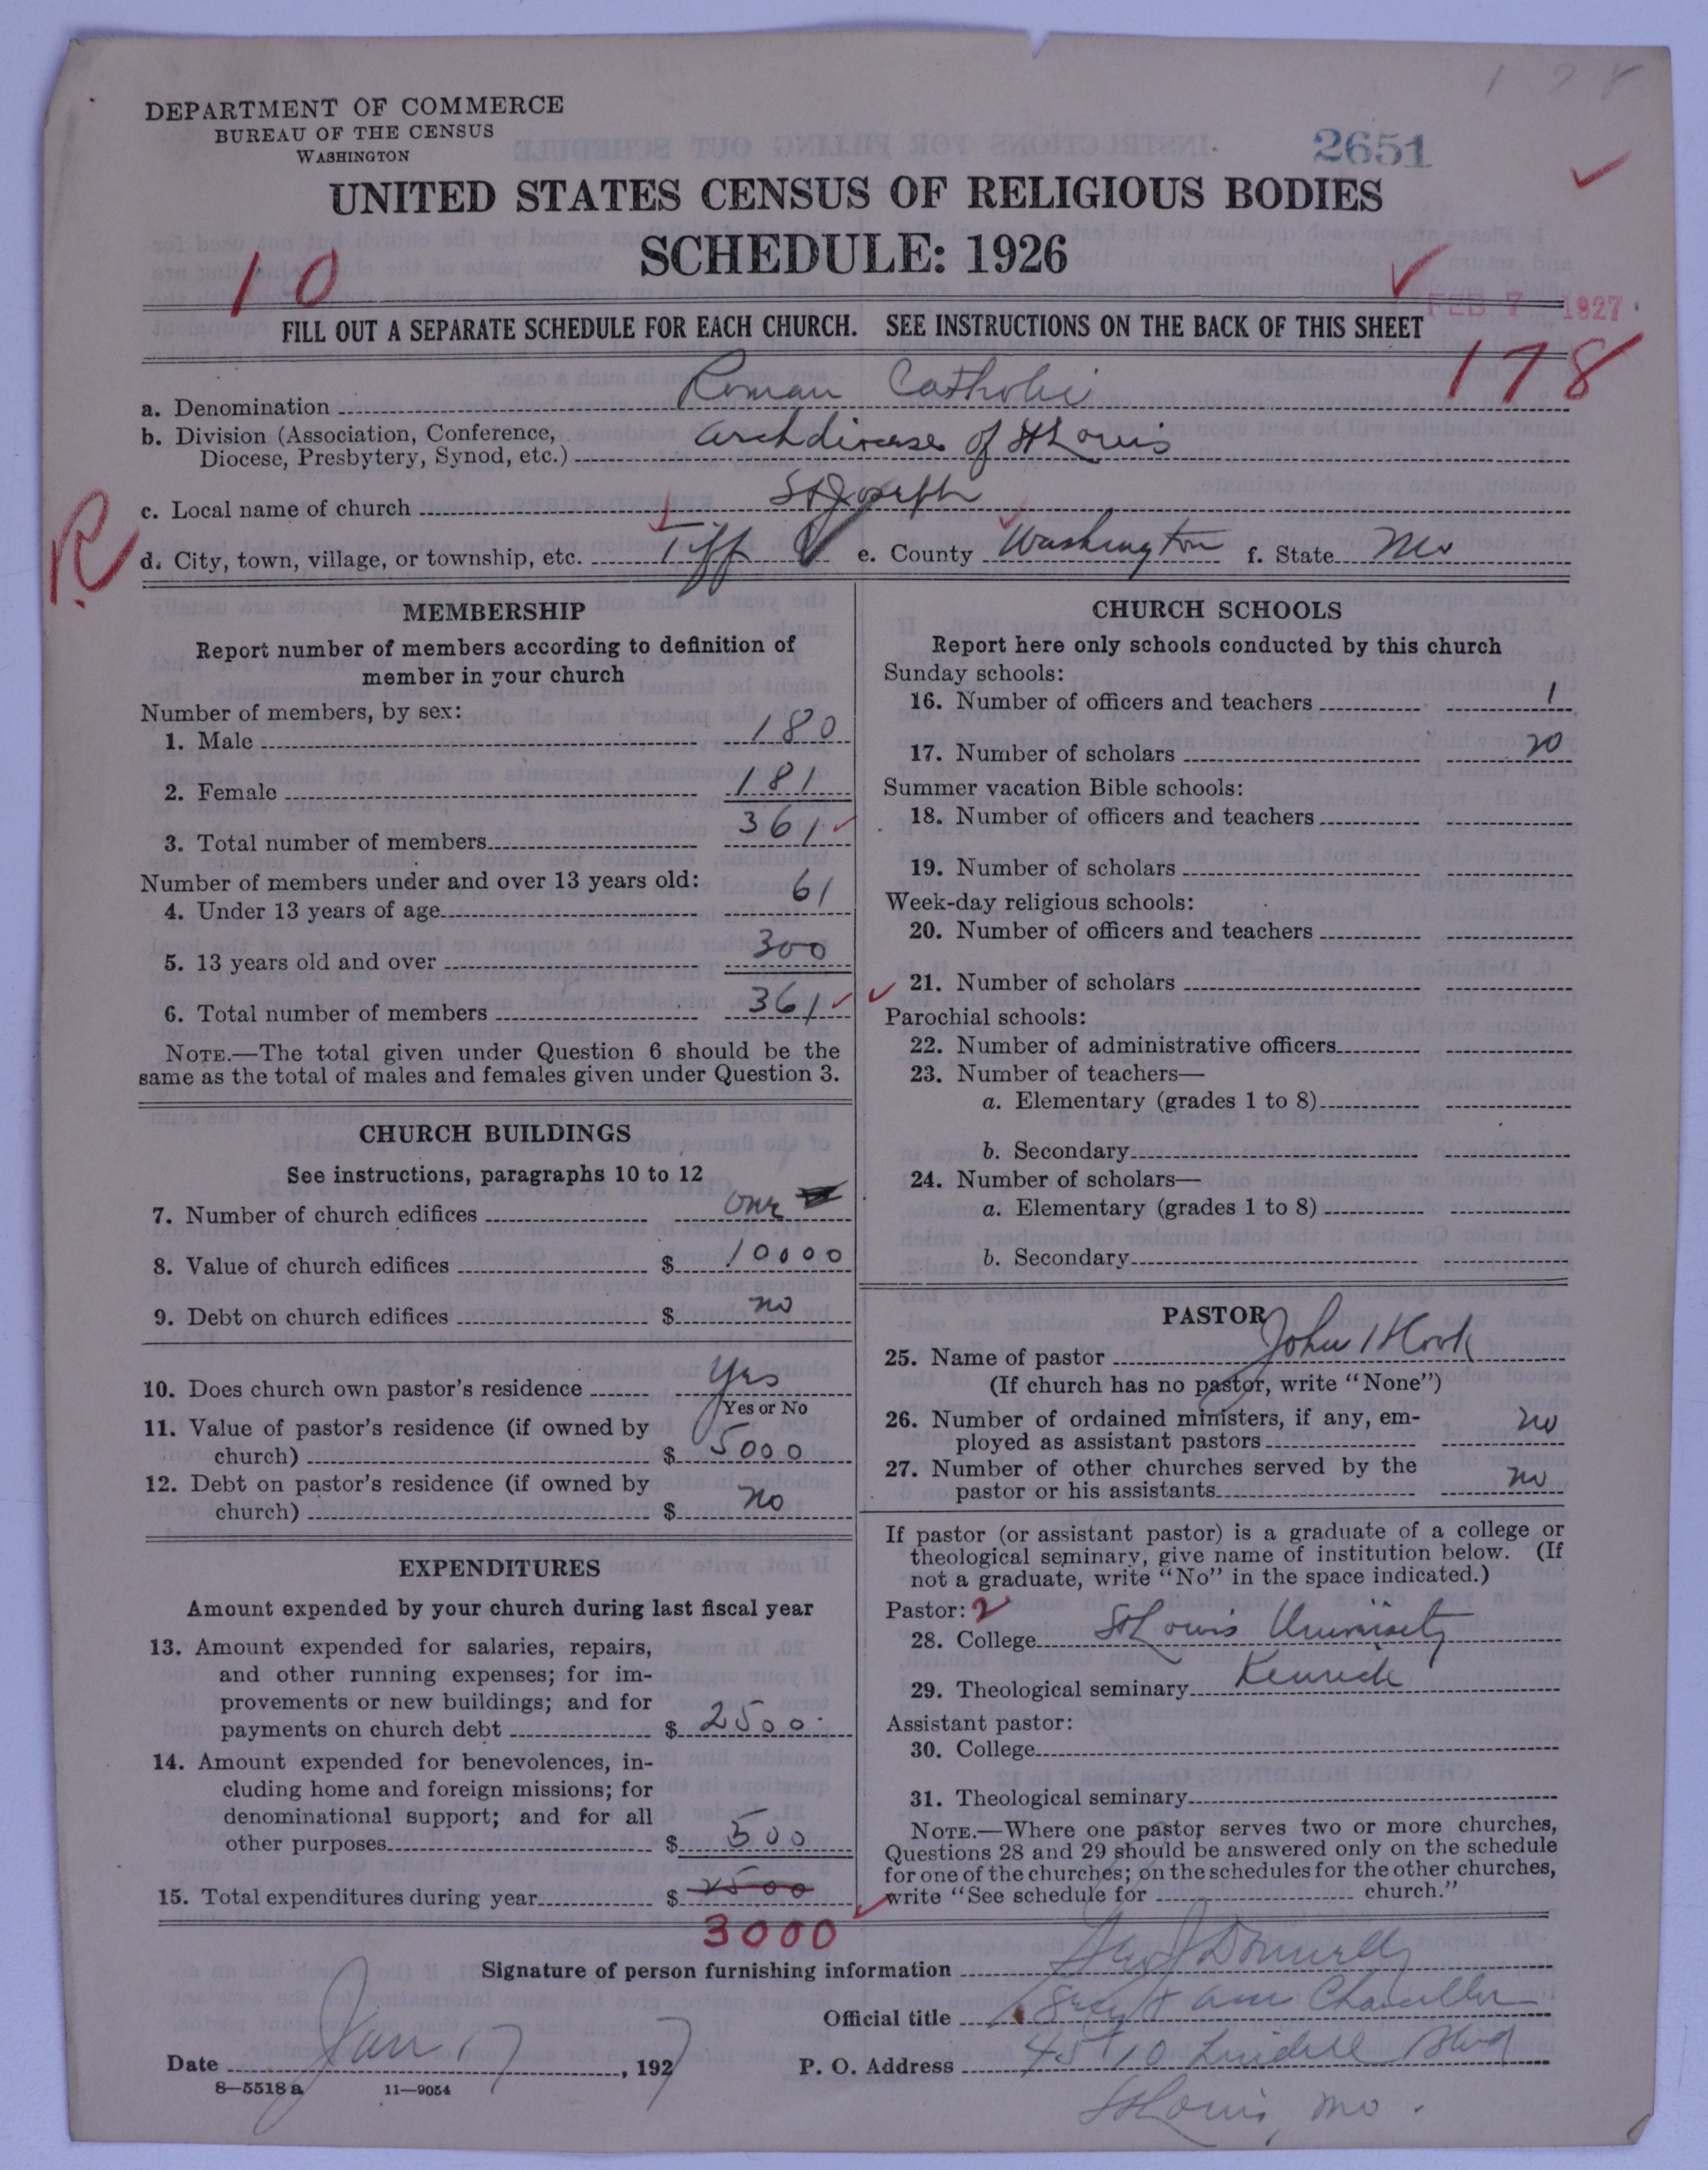 1 7 8
DEPARTMENT OF COMMERCE
BUREAU OF THE CENSUS
WASHINGTON
2651
UNITED STATES CENSUS OF RELIGIOUS BODIES
SCHEDULE: 1926
10
FEB 7 1927
FILL OUT A SEPARATE SCHEDULE FOR EACH CHURCH. SEE INSTRUCTIONS ON THE BACK OF THIS SHEET
178
a. Denomination Roman Catholic
b. Division (Association, Conference, Diocese, Presbytery, Synod, etc.) Archdiocese of St Louis
c. Local name of church St Joseph
R
d. City, town, village, or township, etc. Tiff e. County Washington f. State Mo
MEMBERSHIP
Report number of members according to definition of
member in your church
Number of members, by sex:
1. Male 180
2. Female 181
3. Total number of members 361
Number of members under and over 13 years old:
4. Under 13 years of age 61
5. 13 years old and over 300
6. Total number of members 361
NOTE.—The total given under Question 6 should be the
same as the total of males and females given under Question 3.
CHURCH BUILDINGS
See instructions, paragraphs 10 to 12
7. Number of church edifices One
8. Value of church edifices $ 10000
9. Debt on church edifices $ no
10. Does church own pastor's residence Yes
Yes or No
11. Value of pastor's residence (if owned by
church) $ 5000
12. Debt on pastor's residence (if owned by
church) $ no
EXPENDITURES
Amount expended by your church during last fiscal year
13. Amount expended for salaries, repairs,
and other running expenses; for im-
provements or new buildings; and for
payments on church debt $ 2500
14. Amount expended for benevolences, in-
cluding home and foreign missions; for
denominational support; and for all
other purposes $ 500
15. Total expenditures during year $ 2500
3000
CHURCH SCHOOLS
Report here only schools conducted by this church
Sunday schools:
16. Number of officers and teachers 1
17. Number of scholars 20
Summer vacation Bible schools:
18. Number of officers and teachers
19. Number of scholars
Week-day religious schools:
20. Number of officers and teachers
21. Number of scholars
Parochial schools:
22. Number of administrative officers
23. Number of teachers—
a. Elementary (grades 1 to 8)
b. Secondary
24. Number of scholars—
a. Elementary (grades 1 to 8)
b. Secondary
PASTOR
25. Name of pastor John
(If church has no pastor, write "None")
26. Number of ordained ministers, if any, em-
ployed as assistant pastors no
27. Number of other churches served by the
pastor or his assistants no
If pastor (or assistant pastor) is a graduate of a college or
theological seminary, give name of institution below. (If
not a graduate, write "No" in the space indicated.)
Pastor: 2
28. College St Louis University
29. Theological seminary Kenrick
Assistant pastor:
30. College
31. Theological seminary
NOTE.—Where one pastor serves two or more churches,
Questions 28 and 29 should be answered only on the schedule
for one of the churches; on the schedules for the other churches,
write "See schedule for church."
Signature of person furnishing information Donnelly
Official title Chancellor
Date Jan 17, 1927 P. O. Address 4510 Lindell Blvd
St Louis, Mo.
8—5518 a 11—9054